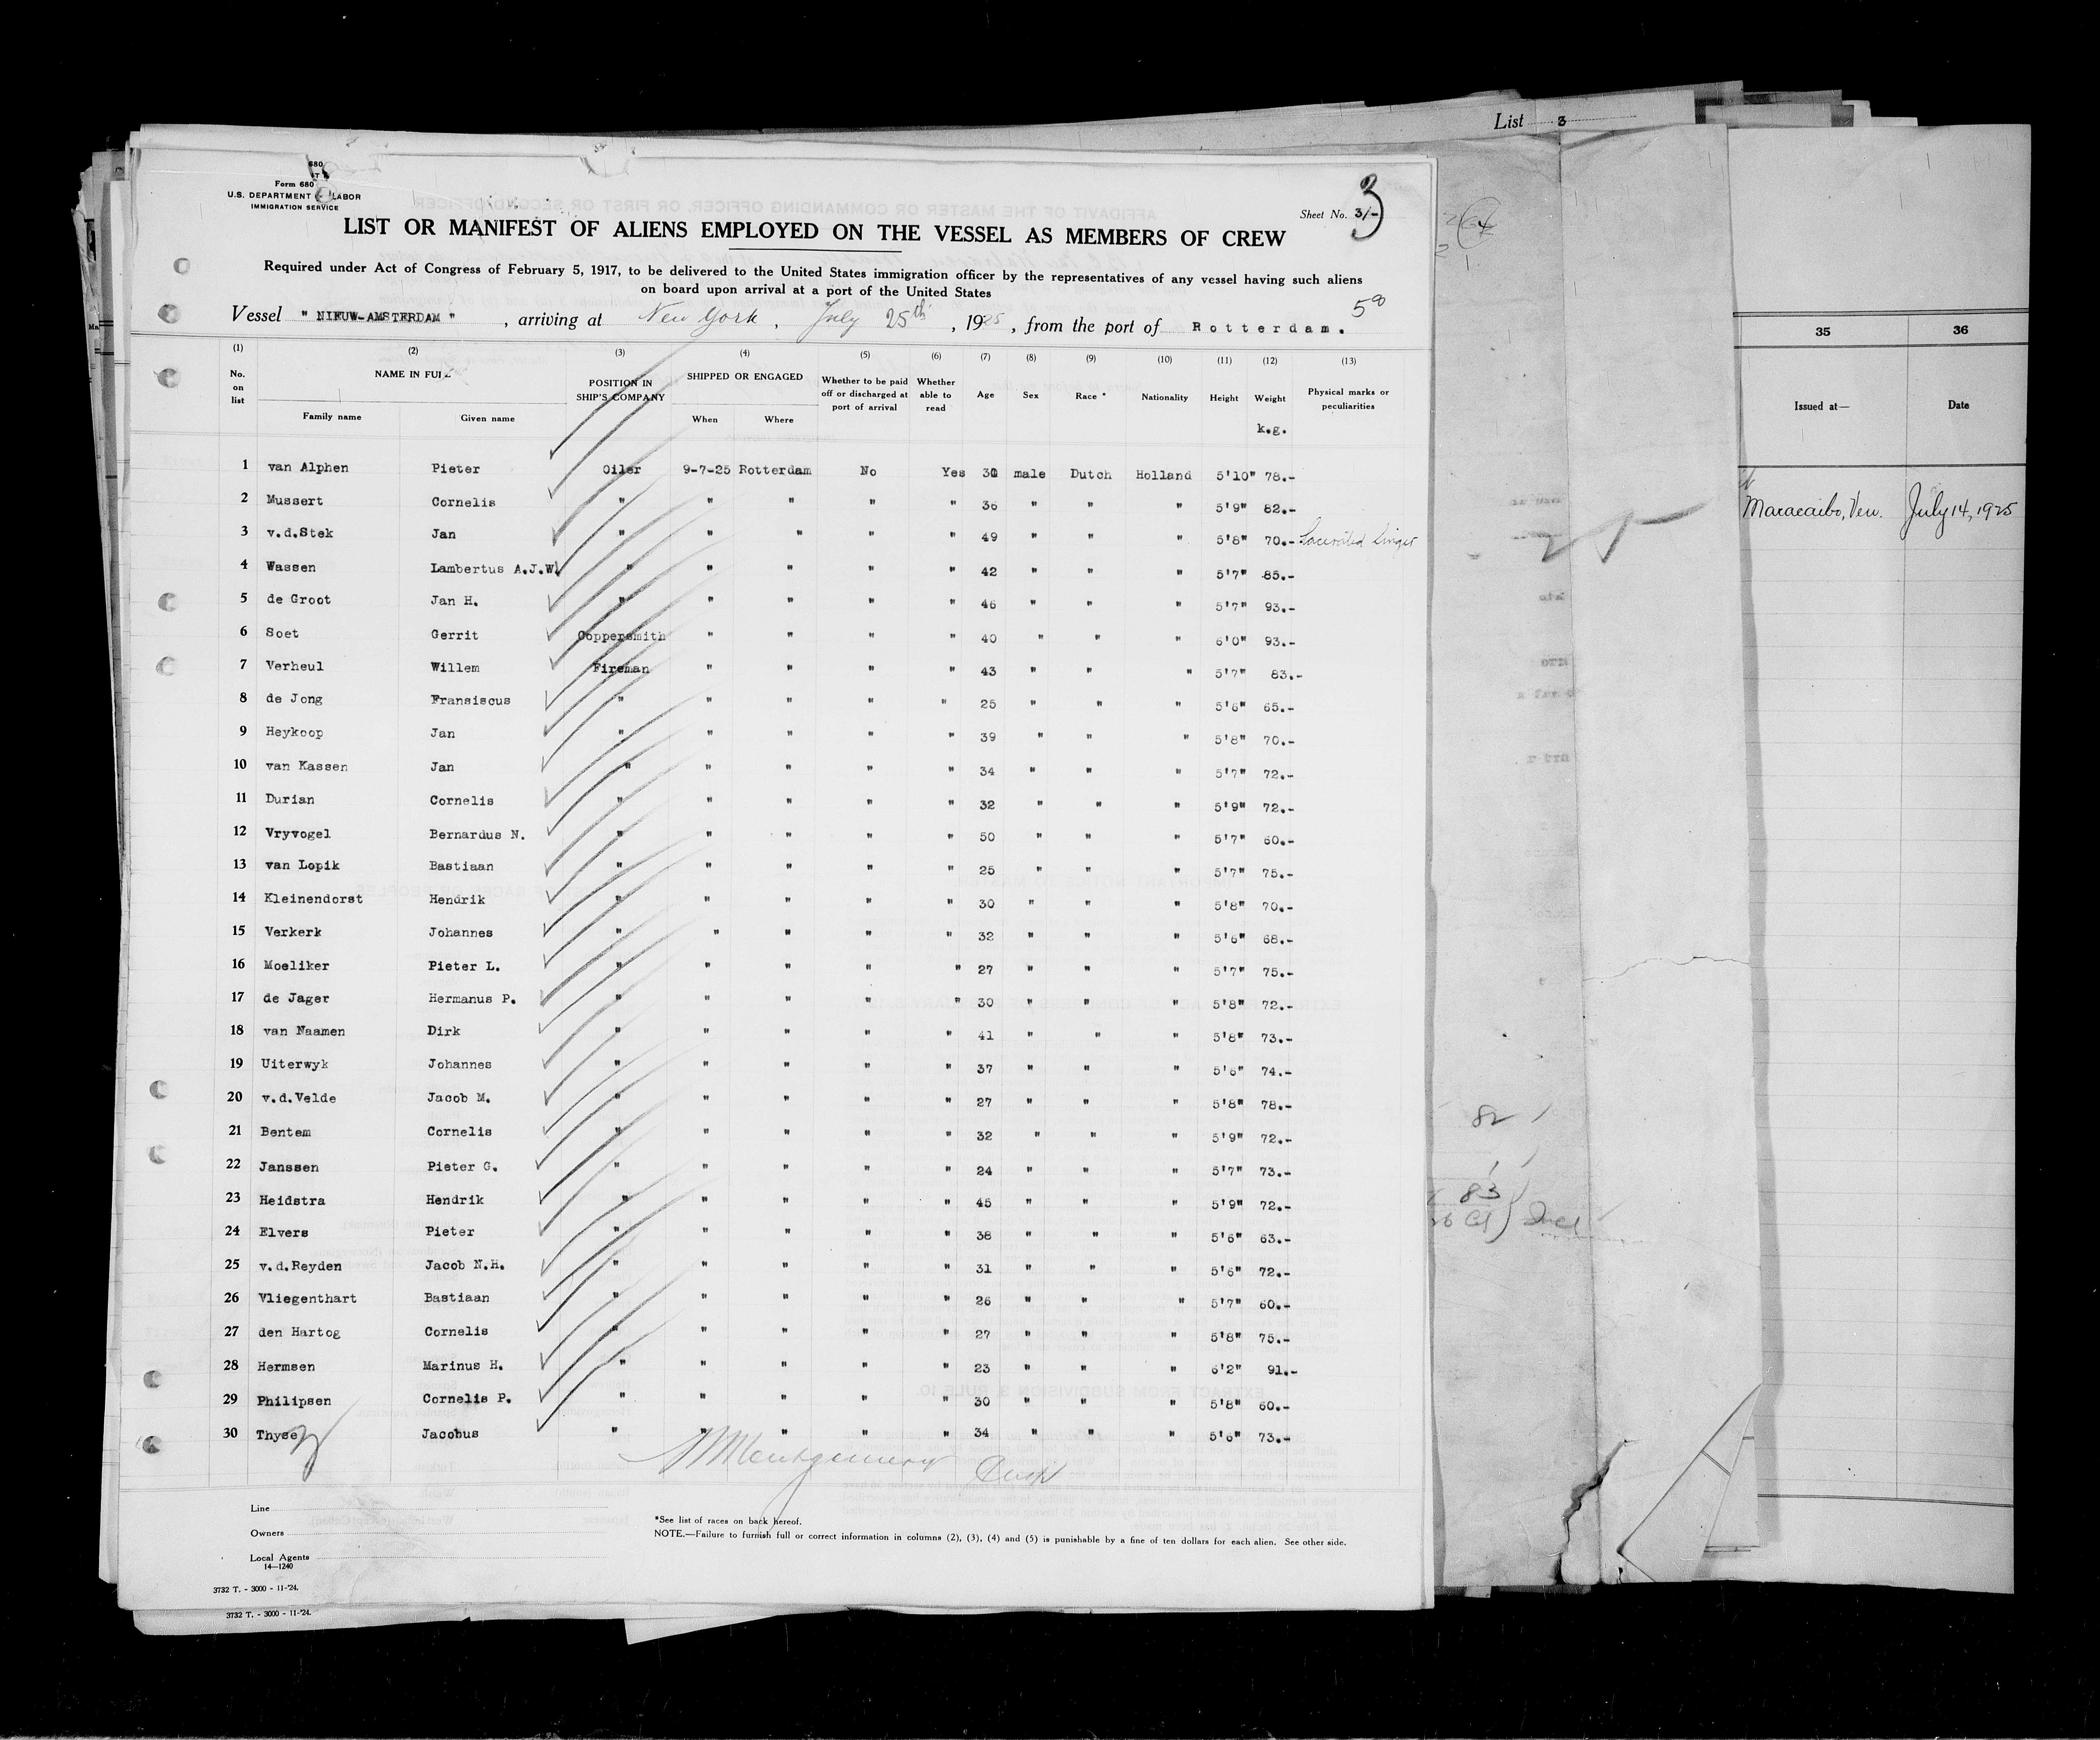 List 3
680
Form 680
U.S. DEPARTMENT LABOR
IMMIGRATION SERVICE
Sheet No. 3/-
3
LIST OR MANIFEST OF ALIENS EMPLOYED ON THE VESSEL AS MEMBERS OF CREW
Required under Act of Congress of February 5, 1917, to be delivered to the United States immigration officer by the representatives of any vessel having such aliens
on board upon arrival at a port of the United States
Vessel " NIEUW-AMSTERDAM ", arriving at New York, July 25th, 1925, from the port of Rotterdam.
(1) (2) (3) (4) (5) (6) (7) (8) (9) (10) (11) (12) (13)
No. on list NAME IN FULL POSITION IN SHIP'S COMPANY SHIPPED OR ENGAGED Whether to be paid off or discharged at port of arrival Whether able to read Age Sex Race * Nationality Height Weight Physical marks or peculiarities
Family name Given name When Where k.g.
1 van Alphen Pieter Oiler 9-7-25 Rotterdam No Yes male Dutch Holland 5'10" 78.-
2 Mussert Cornelis " " " " " 36 " " " 5'9" 82.-
3 v.d.Stek Jan " " " " " 49 " " " 5'8" 70.-
4 Wassen Lambertus A.J.W. " " " " " 42 " " " 5'7" 85.-
5 de Groot Jan H. " " " " " 46 " " " 5'7" 93.-
6 Soet Gerrit Coppersmith " " " " 40 " " " 6'0" 93.-
7 Verheul Willem Fireman " " " " 43 " " " 5'7" 83.-
8 de Jong Fransiscus " " " " " 25 " " " 5'6" 65.-
9 Heykoop Jan " " " " " 39 " " " 5'8" 70.-
10 van Kassen Jan " " " " " 34 " " " 5'7" 72.-
11 Durian Cornelis " " " " " 32 " " " 5'9" 72.-
12 Vryvogel Bernardus N. " " " " " 50 " " " 5'7" 60.-
13 van Lopik Bastiaan " " " " " 25 " " " 5'7" 75.-
14 Kleinendorst Hendrik " " " " " 30 " " " 5'8" 70.-
15 Verkerk Johannes " " " " " 32 " " " 5'6" 68.-
16 Moeliker Pieter L. " " " " " 27 " " " 5'7" 75.-
17 de Jager Hermanus P. " " " " " 30 " " " 5'8" 72.-
18 van Naamen Dirk " " " " " 41 " " " 5'8" 73.-
19 Uiterwyk Johannes " " " " " 37 " " " 5'6" 74.-
20 v.d.Velde Jacob M. " " " " " 27 " " " 5'8" 78.-
21 Bentem Cornelis " " " " " 32 " " " 5'9" 72.-
22 Janssen Pieter G. " " " " " 24 " " " 5'7" 73.-
23 Heidstra Hendrik " " " " " 45 " " " 5'9" 72.-
24 Elvers Pieter " " " " " 38 " " " 5'6" 63.-
25 v.d.Reyden Jacob N.H. " " " " " 31 " " " 5'6" 72.-
26 Vliegenthart Bastiaan " " " " " 26 " " " 5'7" 60.-
27 den Hartog Cornelis " " " " " 27 " " " 5'8" 75.-
28 Hermsen Marinus H. " " " " " 23 " " " 6'2" 91.-
29 Philipsen Cornelis P. " " " " " 30 " " " 5'8" 60.-
30 Thyse Jacobus " " " " " 34 " " " 5'6" 73.-
Montgomery
Line
Owners
Local Agents
14—1240
3732 T. - 3000 - 11-'24.
3732 T. - 3000 - 11-'24.
*See list of races on back hereof.
NOTE.—Failure to furnish full or correct information in columns (2), (3), (4) and (5) is punishable by a fine of ten dollars for each alien. See other side.
82
83
35 36
Issued at— Date
Maracaibo, Ven. July 14, 1925